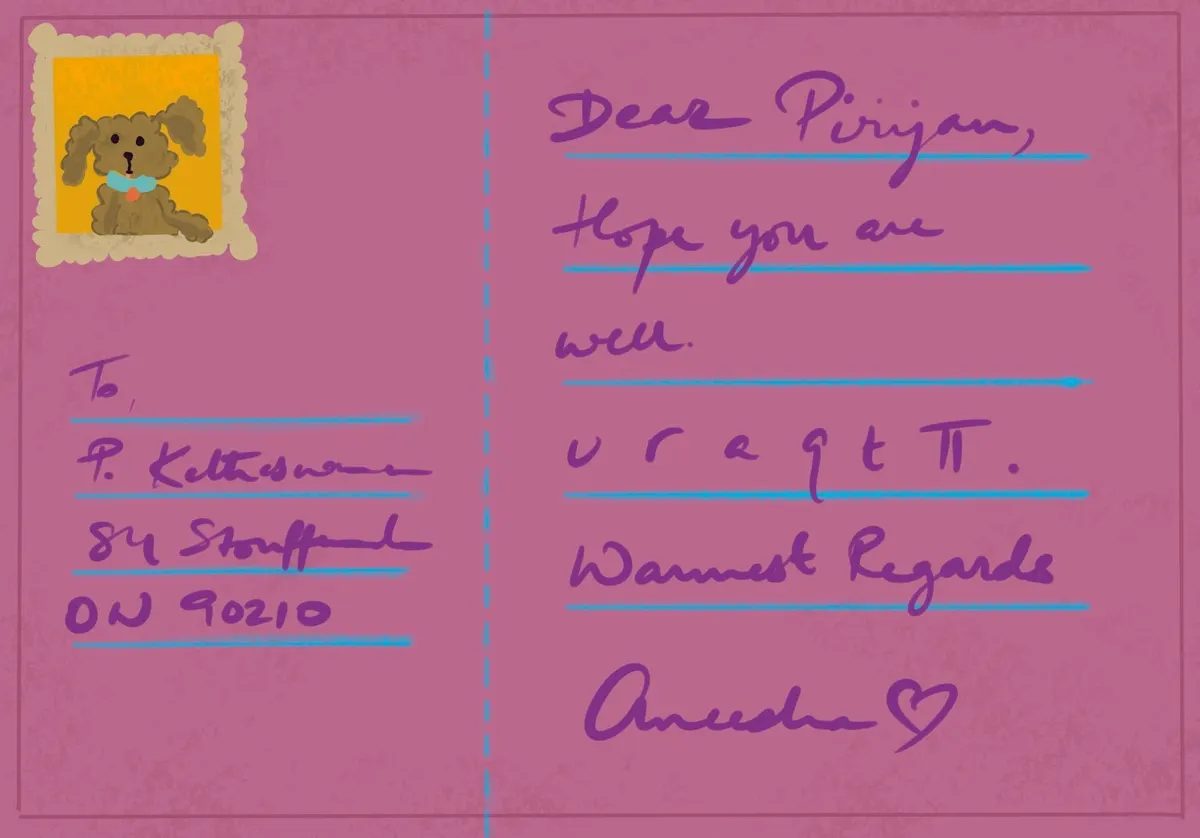 To,
P. Ketheswaran
84 Stouffand
ON 90210
Dear Pirijan,
Hope you are
well.
u r a q t π .
Warmest Regards
Aneesha ♡